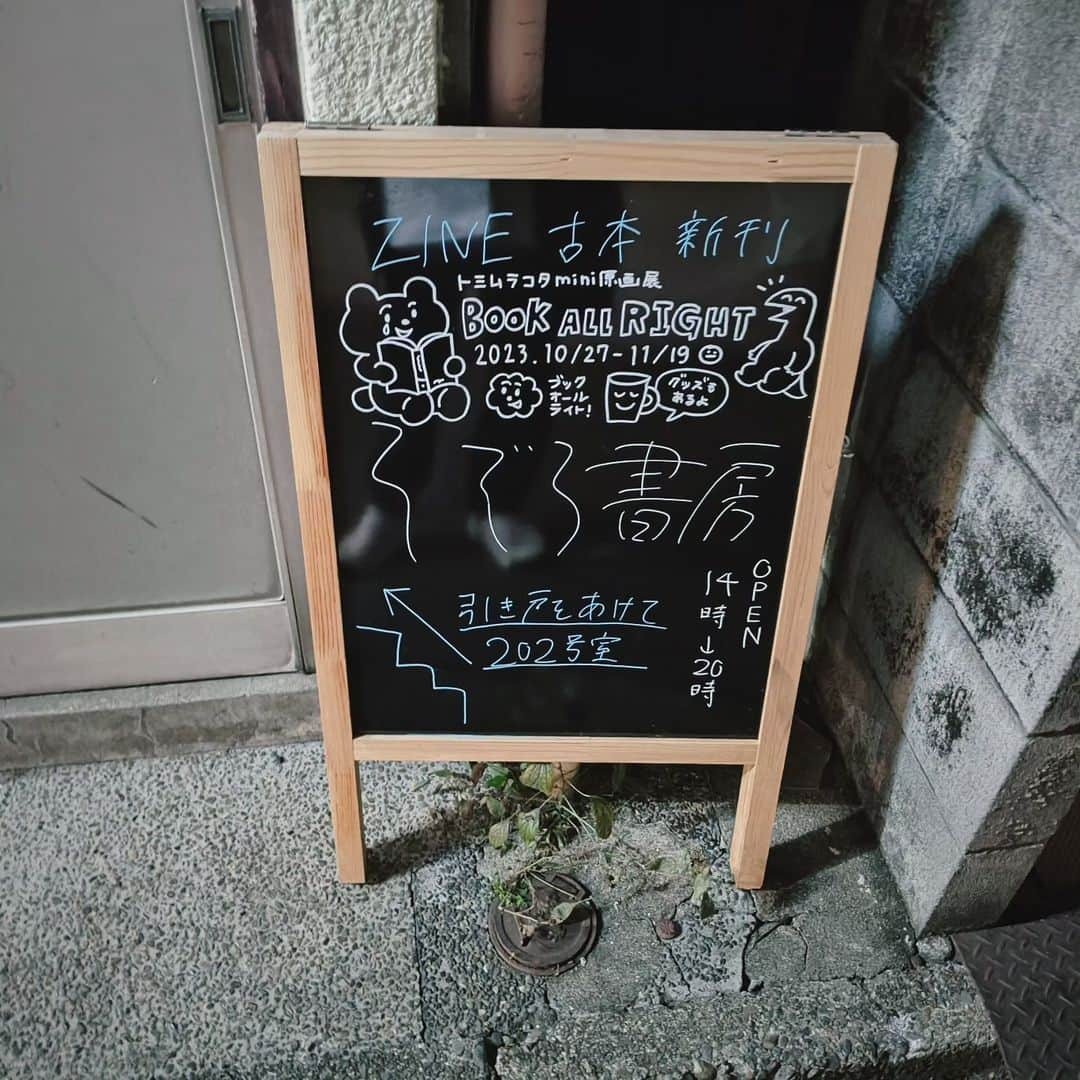 ZINE 古本 新刊
トミムラコタmini原画展
BOOK ALL RIGHT
2023.10/27-11/19
ブック
オール
ライト!
グッズも
あるよ
そぞろ書房
OPEN
14時→20時
引き戸をあけて
202号室